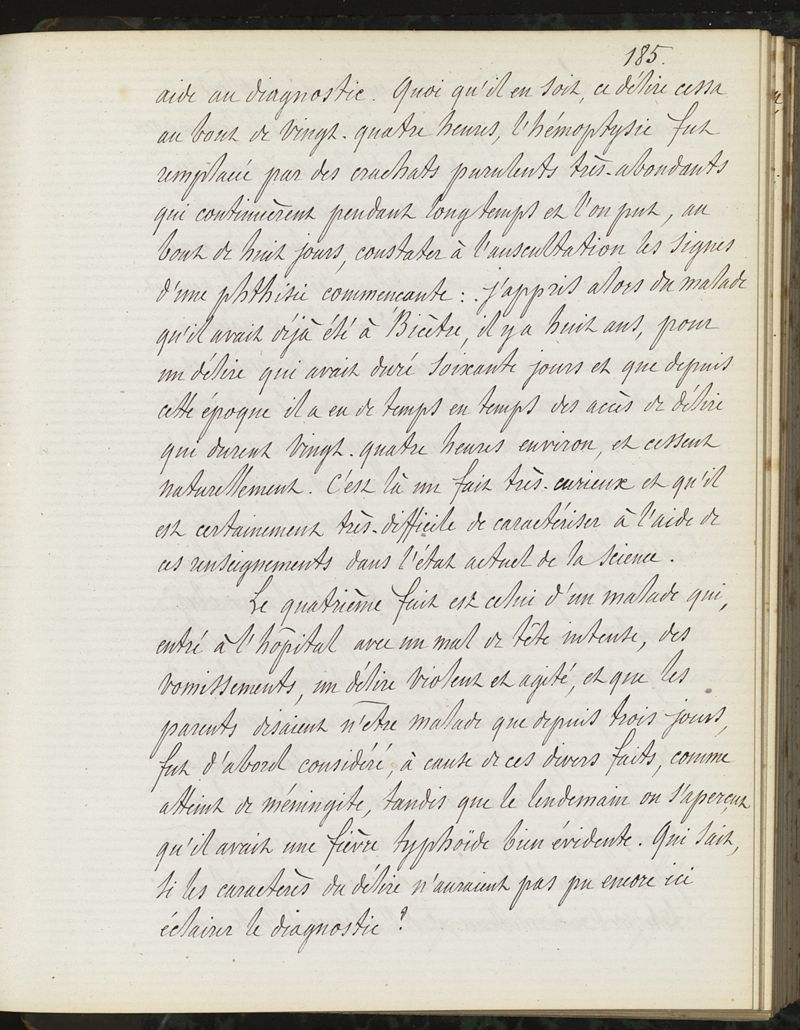 185.
aide au diagnostic. Quoi qu'il en soit, ce délire cessa
au bout de vingt-quatre heures, l'hémoptysie fut
remplacée par des crachats purulents très-abondants
qui continuèrent pendant longtemps et l'on put, au
bout de huit jours, constater à l'auscultation les signes
d'une phthisie commencante : j'appris alors du malade
qu'il avait déjà été à Bicêtre, il y a huit ans, pour
un délire qui avait duré soixante jours et que depuis
cette époque il a eu de temps en temps des accès de délire
qui durent vingt-quatre heures environ, et cessent
naturellement. C'est là un fait très-curieux et qu'il
est certainement très-difficile de caractériser à l'aide de
ces renseignements dans l'état actuel de la science.
Le quatrième fait est celui d'un malade qui,
entré à l'hôpital avec un mal de tête intense, des
vomissements, un délire violent et agité, et que les
parents disaient n'être malade que depuis trois jours,
fut d'abord considéré, à cause de ces divers faits, comme
atteint de méningite, tandis que le lendemain on s'aperçut
qu'il avait une fièvre typhoïde bien évidente. Qui sait,
si les caractères du délire n'auraient pas pu encore ici
éclairer le diagnostic ?